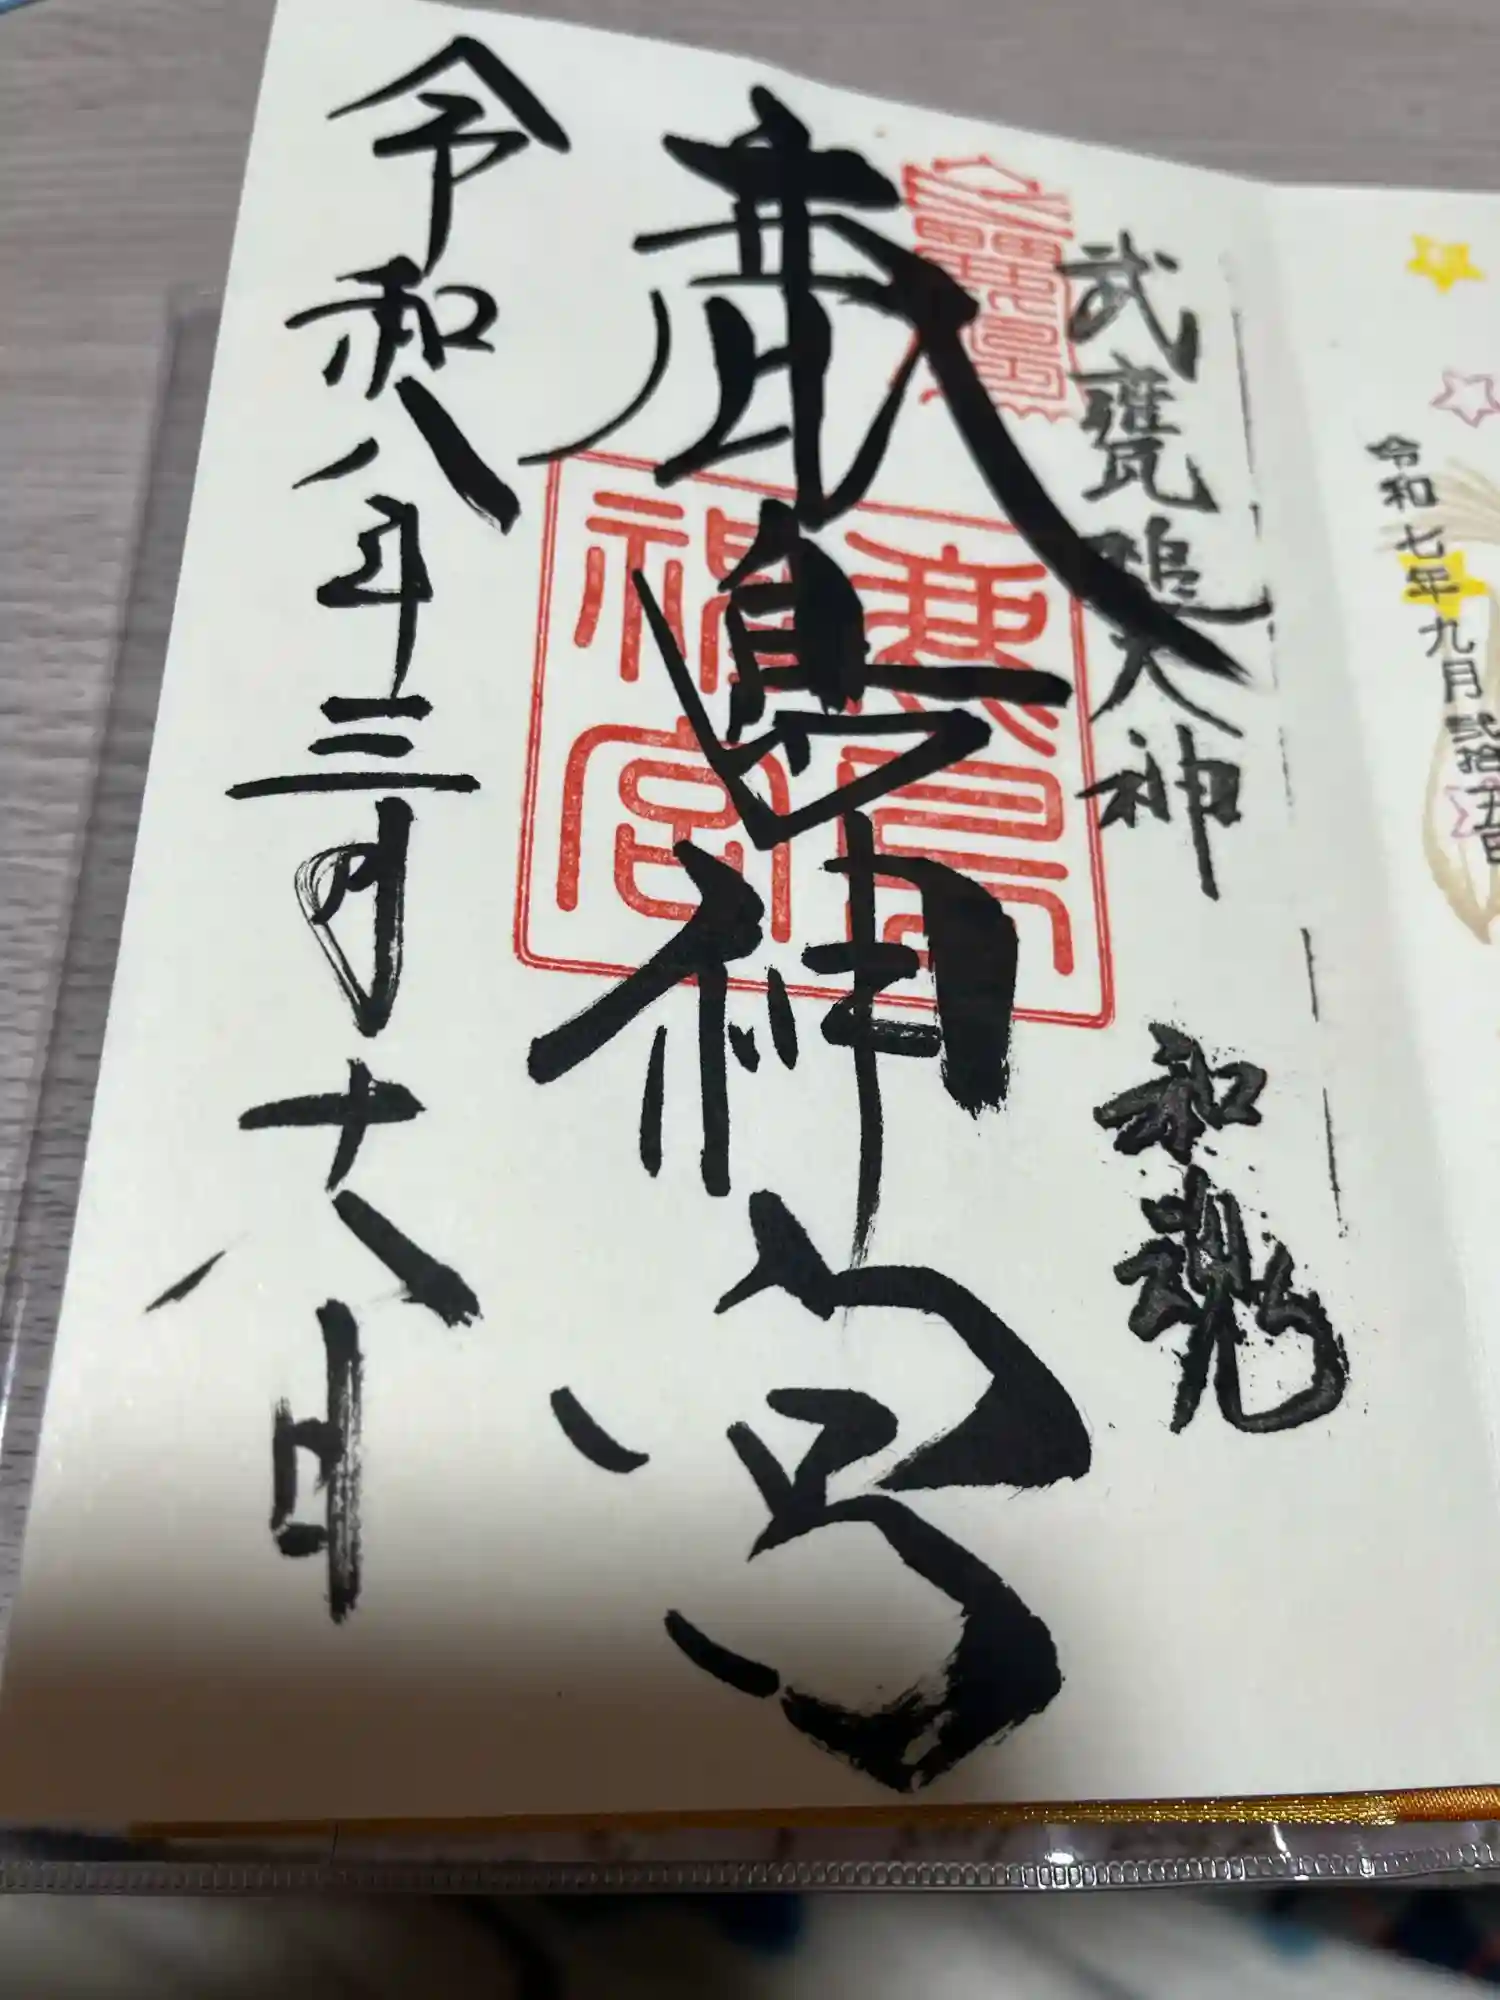 令和七年九月弐拾五日
武甕槌大神
和魂
鹿島神宮
鹿島神宮
令和八年三月十八日